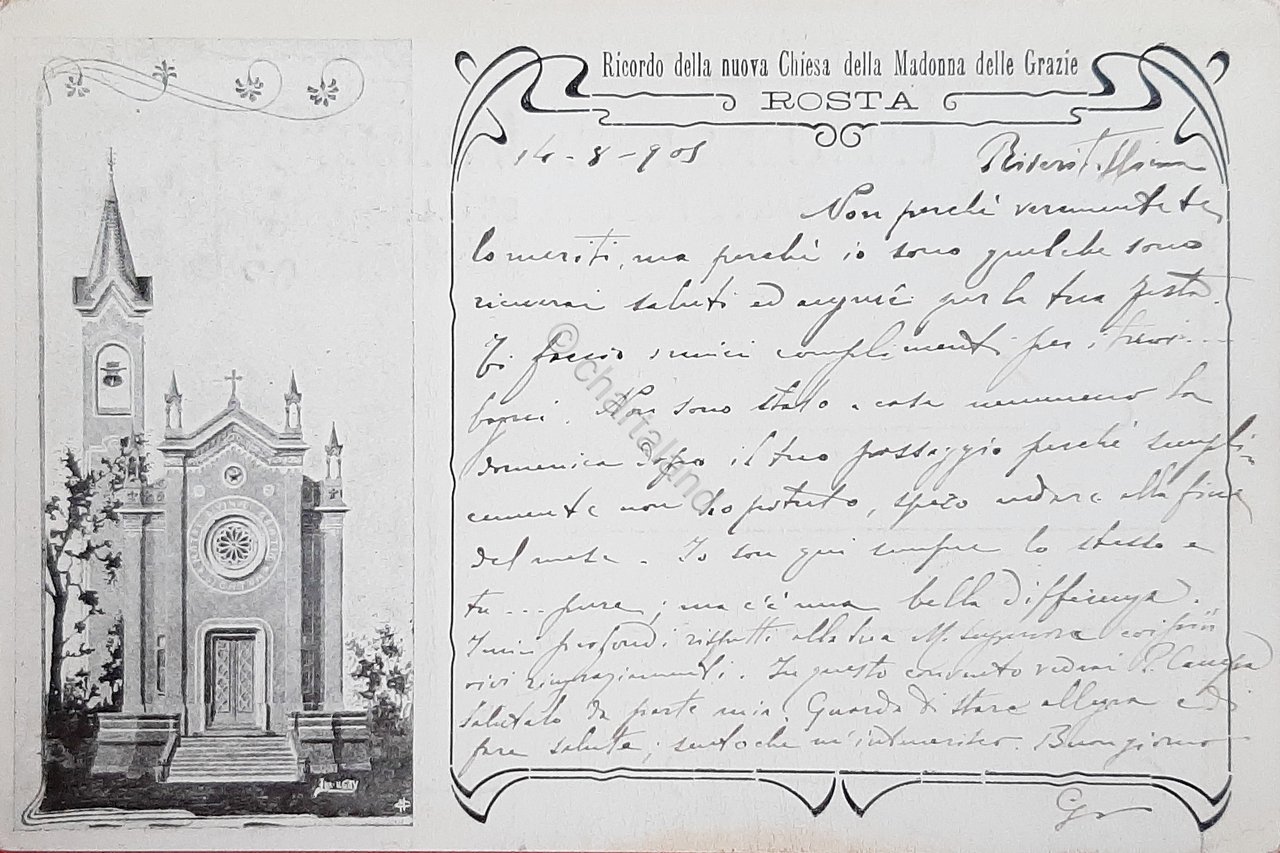 Ricordo della nuova Chiesa della Madonna delle Grazie
ROSTA
14-8-905
Riverit.ssima
Non perchè veramente te
lo meriti, ma perchè io sono quel che sono
riceverai saluti ed auguri per la tua festa.
Ti faccio i miei complimenti per i tuoi...
bagni. Non sono stato a casa nemmeno la
domenica dopo il tuo passaggio perchè sempli-
cemente non ho potuto, spero andare alla fine
del mese. Io son qui sempre lo stesso e
tu... pure; ma c'è una bella differenza.
I miei profondi rispetti alla tua M. Superiora coi più
vivi ringraziamenti. In questo convento vedrai P.
salutalo da parte mia. Guarda di stare allegra e di
fare salute; sento che m'intenerisco. Buongiorno
G
© chartaland